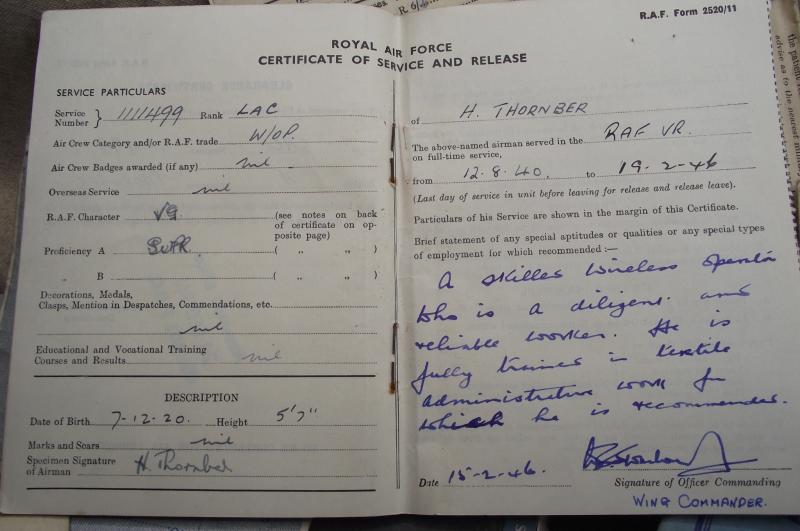 R 6/
R.A.F. Form 2520/11
ROYAL AIR FORCE
CERTIFICATE OF SERVICE AND RELEASE
SERVICE PARTICULARS
Service Number } 1111499 Rank LAC
Air Crew Category and/or R.A.F. trade W/OP.
Air Crew Badges awarded (if any) nil
Overseas Service nil
R.A.F. Character VG (see notes on back
of certificate on op-
posite page)
Proficiency A SUPR ( „ „ )
„ B ( „ „ )
Decorations, Medals,
Clasps, Mention in Despatches, Commendations, etc.
nil
Educational and Vocational Training
Courses and Results nil
DESCRIPTION
Date of Birth 7-12-20. Height 5'7"
Marks and Scars nil
Specimen Signature
of Airman H. Thornber
of H. THORNBER
The above-named airman served in the RAF VR.
on full-time service,
from 12.8.40. to 19.2.46
(Last day of service in unit before leaving for release and release leave).
Particulars of his Service are shown in the margin of this Certificate.
Brief statement of any special aptitudes or qualities or any special types
of employment for which recommended :—
A skilled wireless operator
who is a diligent and
reliable worker. He is
fully trained in textile
administrative work for
which he is recommended.
Date 15-2-46.
Signature of Officer Commanding
WING COMMANDER.
the patient
advise as to the nearest